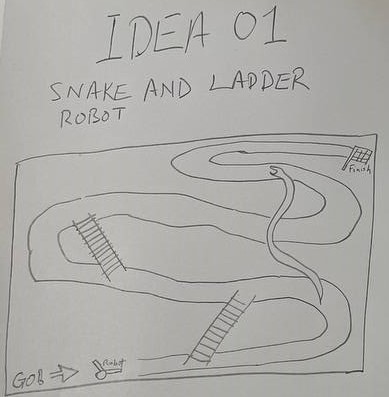 IDEA 01
SNAKE AND LADDER
ROBOT
Finish
GO!!
Robot